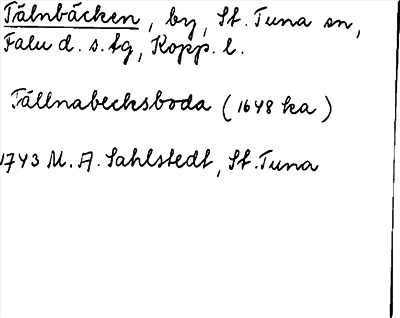 Tälnbäcken, by, St. Tuna sn,
Falu d. s. tg, Kopp. l.
Tällnabecksboda (1648 ka)
1743 M. A. Sahlstedt, St. Tuna